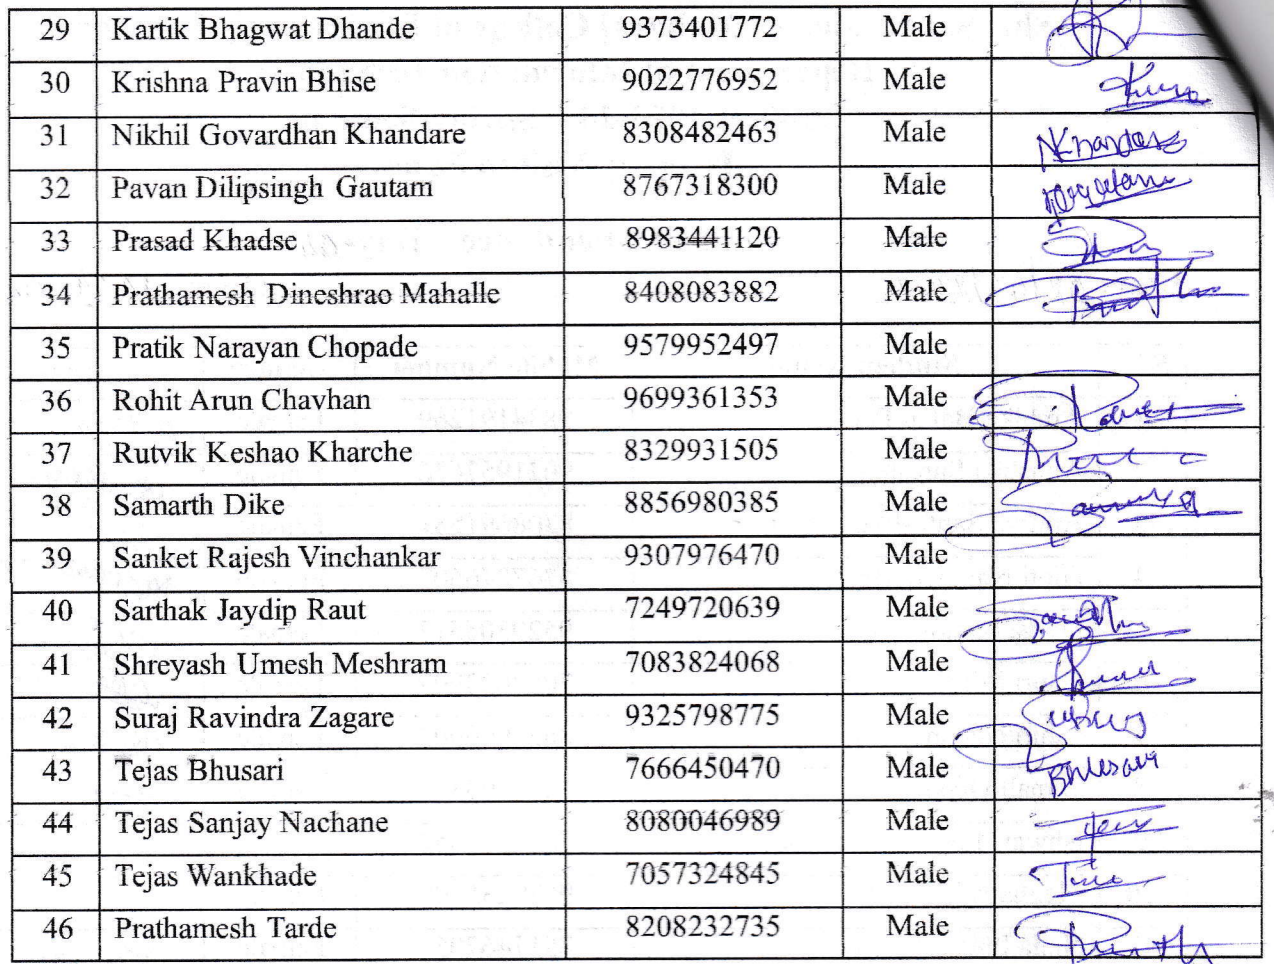 29 Kartik Bhagwat Dhande 9373401772 Male
30 Krishna Pravin Bhise 9022776952 Male
31 Nikhil Govardhan Khandare 8308482463 Male NKhandare
32 Pavan Dilipsingh Gautam 8767318300 Male
33 Prasad Khadse 8983441120 Male
34 Prathamesh Dineshrao Mahalle 8408083882 Male
35 Pratik Narayan Chopade 9579952497 Male
36 Rohit Arun Chavhan 9699361353 Male
37 Rutvik Keshao Kharche 8329931505 Male
38 Samarth Dike 8856980385 Male
39 Sanket Rajesh Vinchankar 9307976470 Male
40 Sarthak Jaydip Raut 7249720639 Male
41 Shreyash Umesh Meshram 7083824068 Male
42 Suraj Ravindra Zagare 9325798775 Male
43 Tejas Bhusari 7666450470 Male Bhusari
44 Tejas Sanjay Nachane 8080046989 Male
45 Tejas Wankhade 7057324845 Male
46 Prathamesh Tarde 8208232735 Male